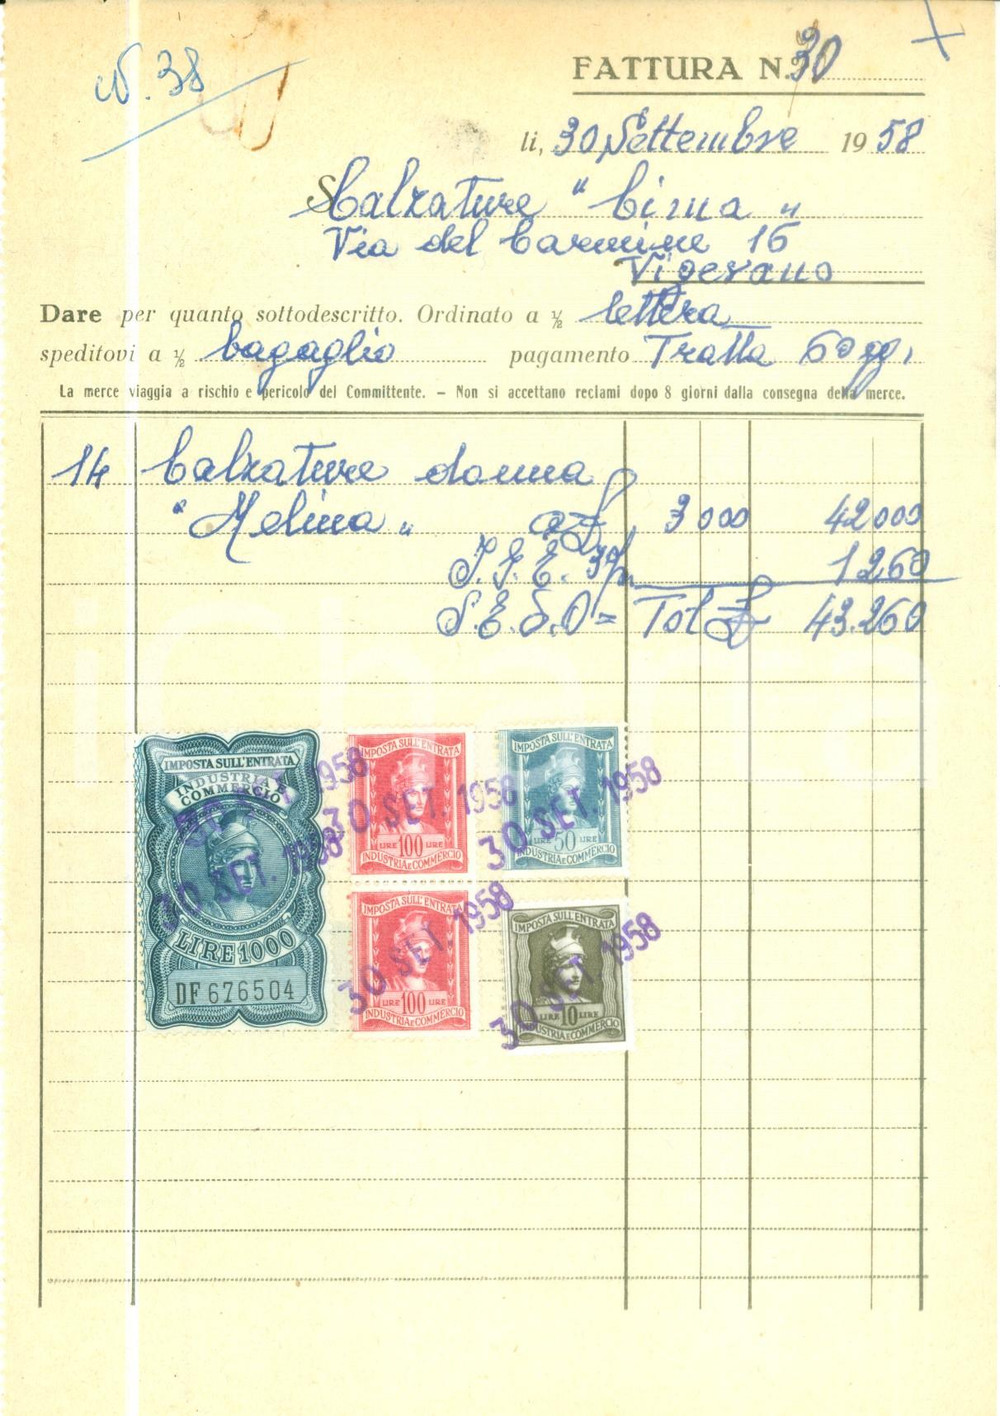 N. 38
FATTURA N. 30
li, 30 Settembre 1958
S Calzature "Cirna"
Via del Carmine 16
Vigevano
Dare per quanto sottodescritto. Ordinato a ½ lettera
speditovi a ½ bagaglio pagamento Tratta 60 gg.
La merce viaggia a rischio e pericolo del Committente. – Non si accettano reclami dopo 8 giorni dalla consegna della merce.
14 Calzature donna
"Melina" a £ 3000 42000
I.G.E. 3% 1260
S.E.&.O = Tot £ 43.260
IMPOSTA SULL'ENTRATA
INDUSTRIA E
COMMERCIO
LIRE 1000
DF 676504
30 SET. 1958
30 SET. 1958
IMPOSTA SULL'ENTRATA
LIRE 100 LIRE
INDUSTRIA E COMMERCIO
30 SET. 1958
IMPOSTA SULL'ENTRATA
LIRE 50 LIRE
INDUSTRIA E COMMERCIO
30 SET. 1958
IMPOSTA SULL'ENTRATA
LIRE 100 LIRE
INDUSTRIA E COMMERCIO
30 SET. 1958
IMPOSTA SULL'ENTRATA
LIRE 10 LIRE
INDUSTRIA E COMMERCIO
30 SET. 1958